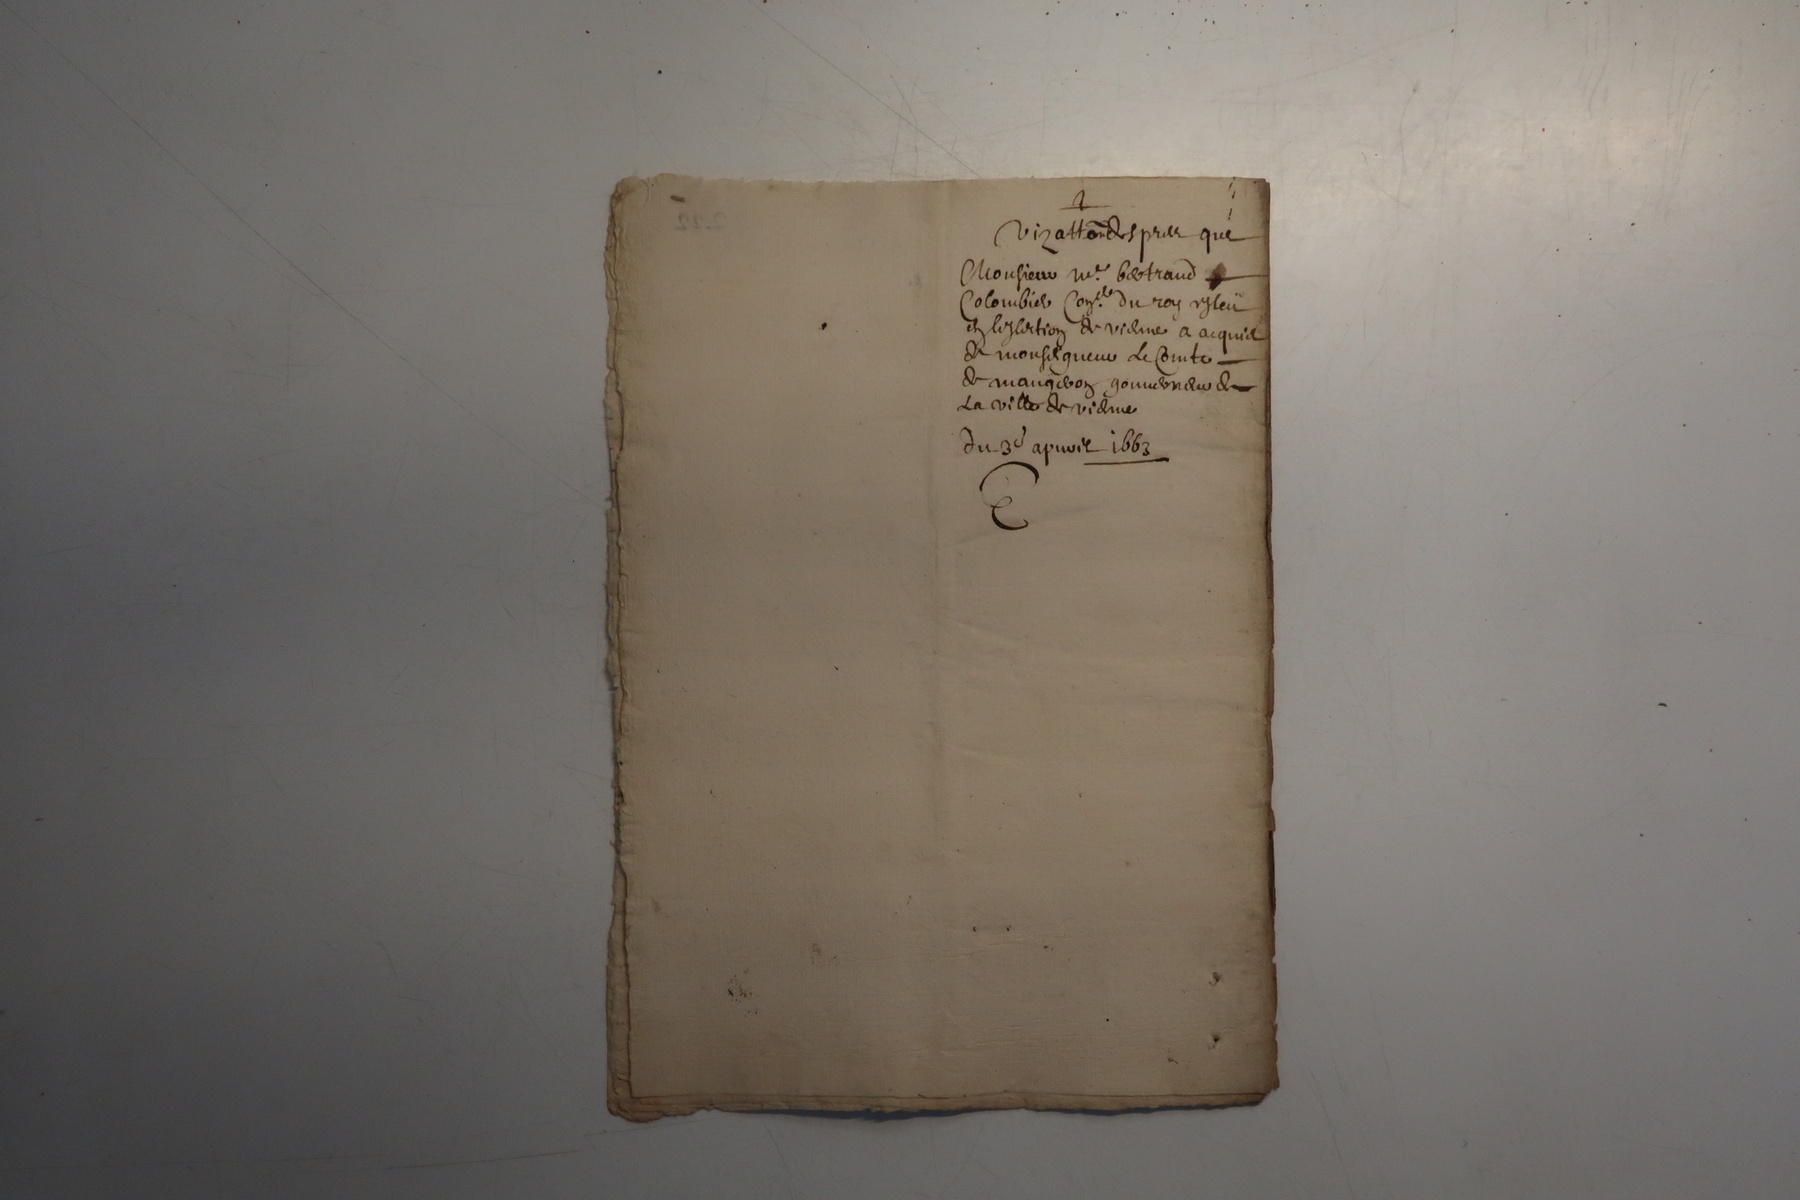 Vizattõn des prez que
Monsieur mr. bertrand
Colombier Conser. du roy esleu
en leslection de vienne a acquis
de monseigneur Le Comte
de maugeron gouuerneur de
La ville de vienne
Du 3e apuril 1663